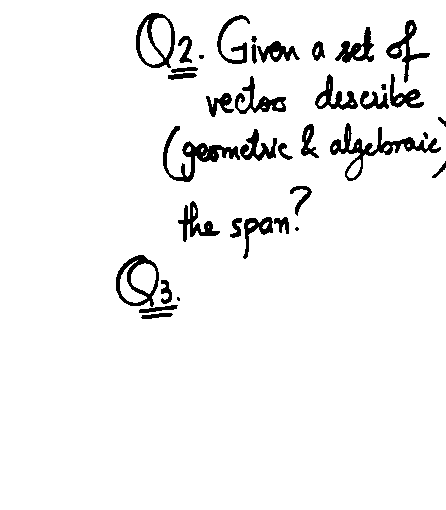 Q2. Given a set of
vectors describe
(geometric & algebraic)
the span?
Q3.